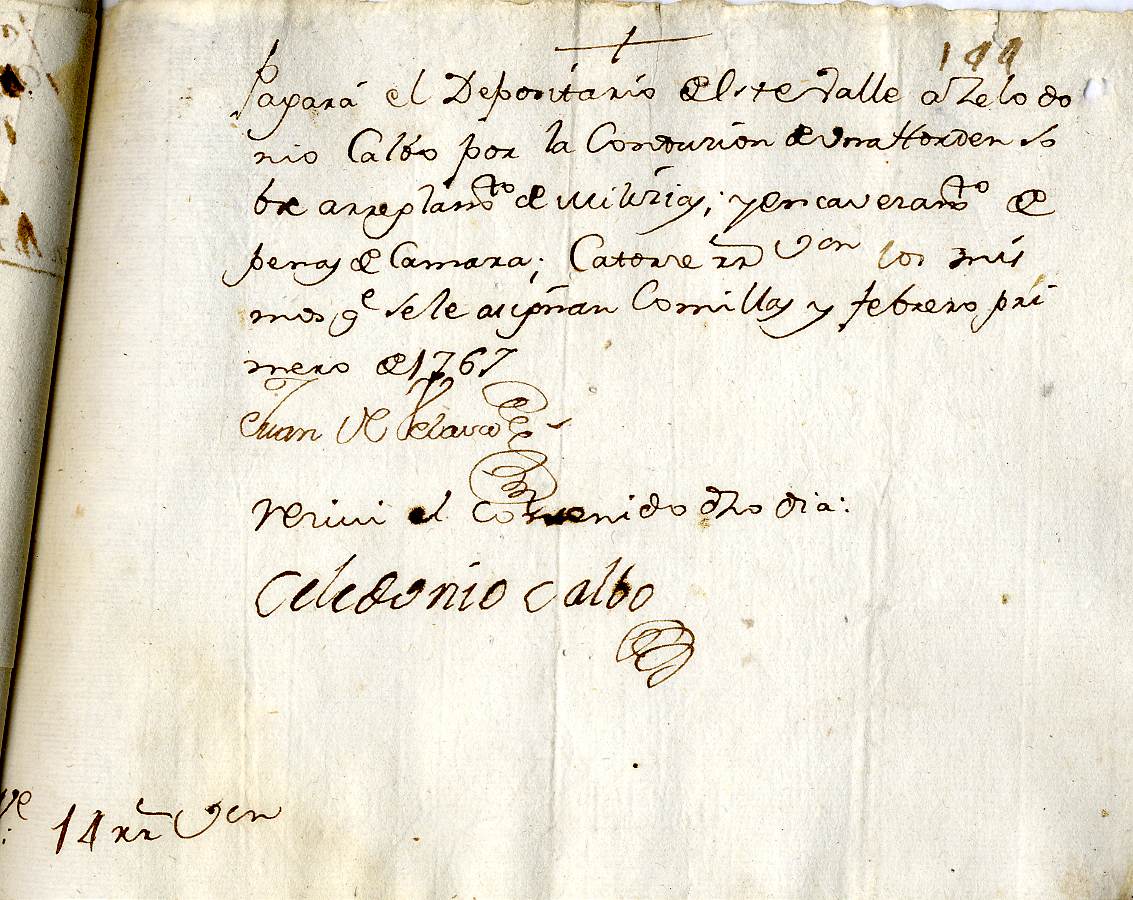 144
Pagará el Depositario de este Valle a Zeledo
nio Calbo por la Conducion de una Horden so
bre arreglam.to de milizias; y encaveram.to de
penas de Camara; Catorze rr.s von los mis
mos q.e se le asignan Comillas y febrero pri
mero de 1767
Juan de
Rezivi el Contenido dho dia:
Celedonio Calbo
14 rr.s von